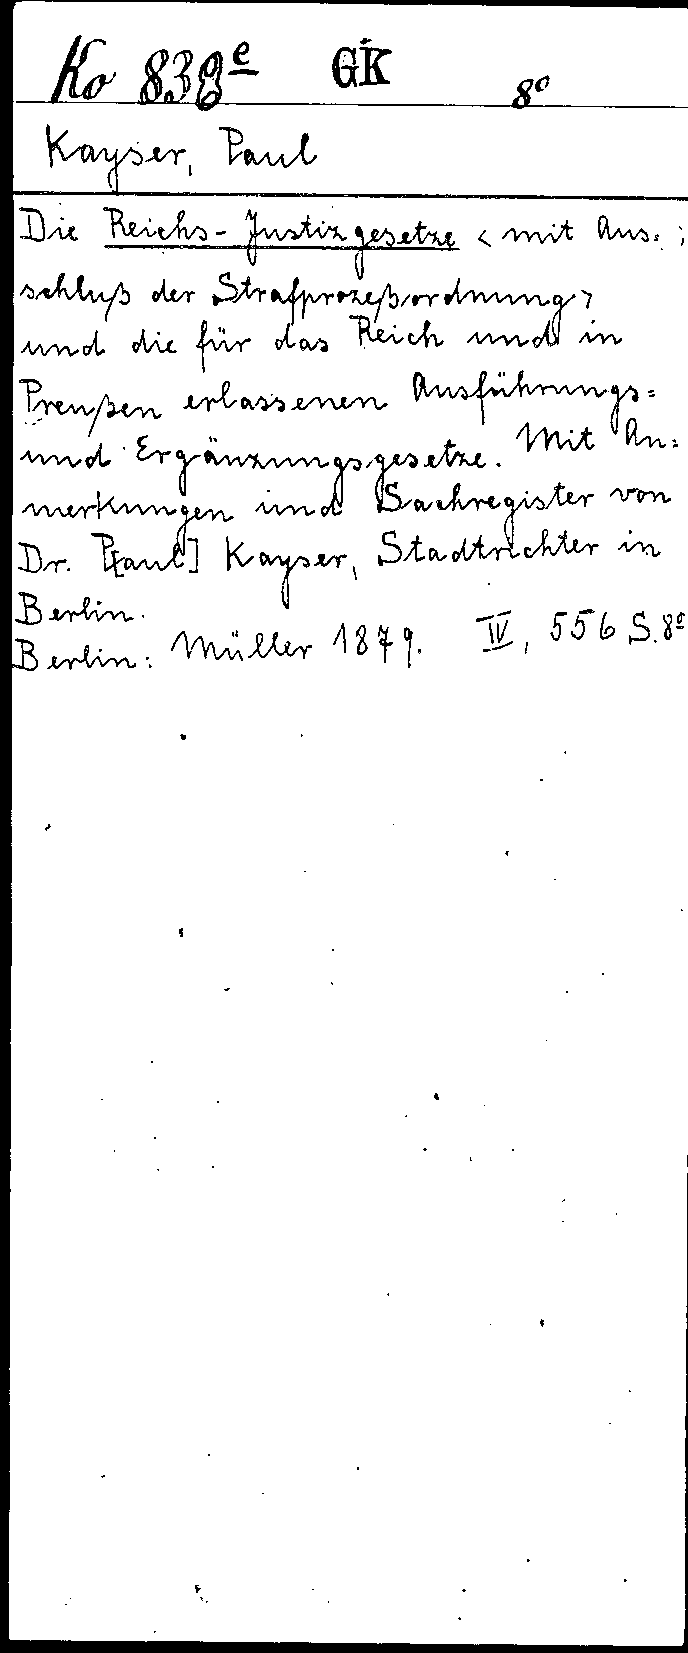 Ko 838e GK 8°
Kayser, Paul
Die Reichs-Justizgesetze < mit Aus=
schluß der Strafprozeßordnung>
und die für das Reich und in
Preußen erlassenen Ausführungs=
und Ergänzungsgesetze. Mit An=
merkungen und Sachregister von
Dr. P[aul] Kayser, Stadtrichter in
Berlin.
Berlin: Müller 1879. IV, 556 S. 8°